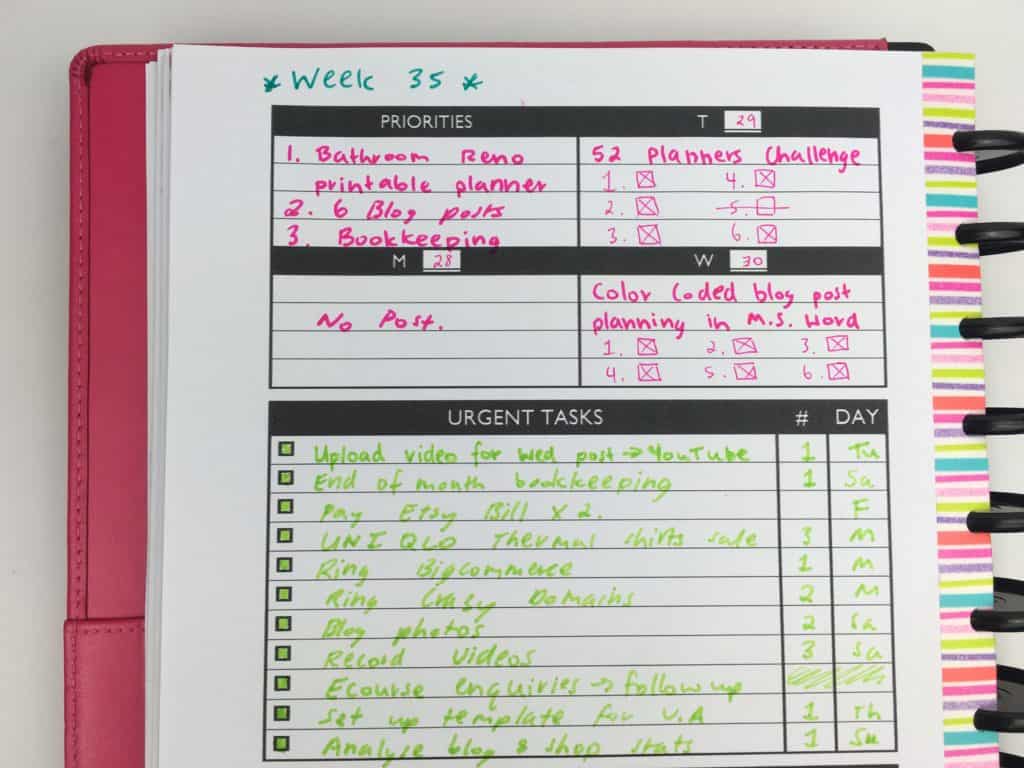 * Week 35 *
PRIORITIES
1. Bathroom Reno
printable planner
2. 6 Blog posts
3. Bookkeeping
T 29
52 Planners Challenge
1. ☒ 4. ☒
2. ☒ 5. ☐
3. ☒ 6. ☒
M 28
No Post.
W 30
Color Coded blog post
planning in M.S. Word
1. ☒ 2. ☒ 3. ☒
4. ☒ 5. ☒ 6. ☒
URGENT TASKS # DAY
Upload video for wed post → YouTube 1 Tu
End of month bookkeeping 1 Sa
Pay Etsy Bill x 2. F
UNIQLO Thermal shirts sale 3 M
Ring Bigcommerce 1 M
Ring Crazy Domains 2 M
Blog photos 2 Sa
Record videos 3 Sa
Ecourse enquiries → follow up
Set up template for V.A 1 Th
Analyse blog & shop stats 1 Su